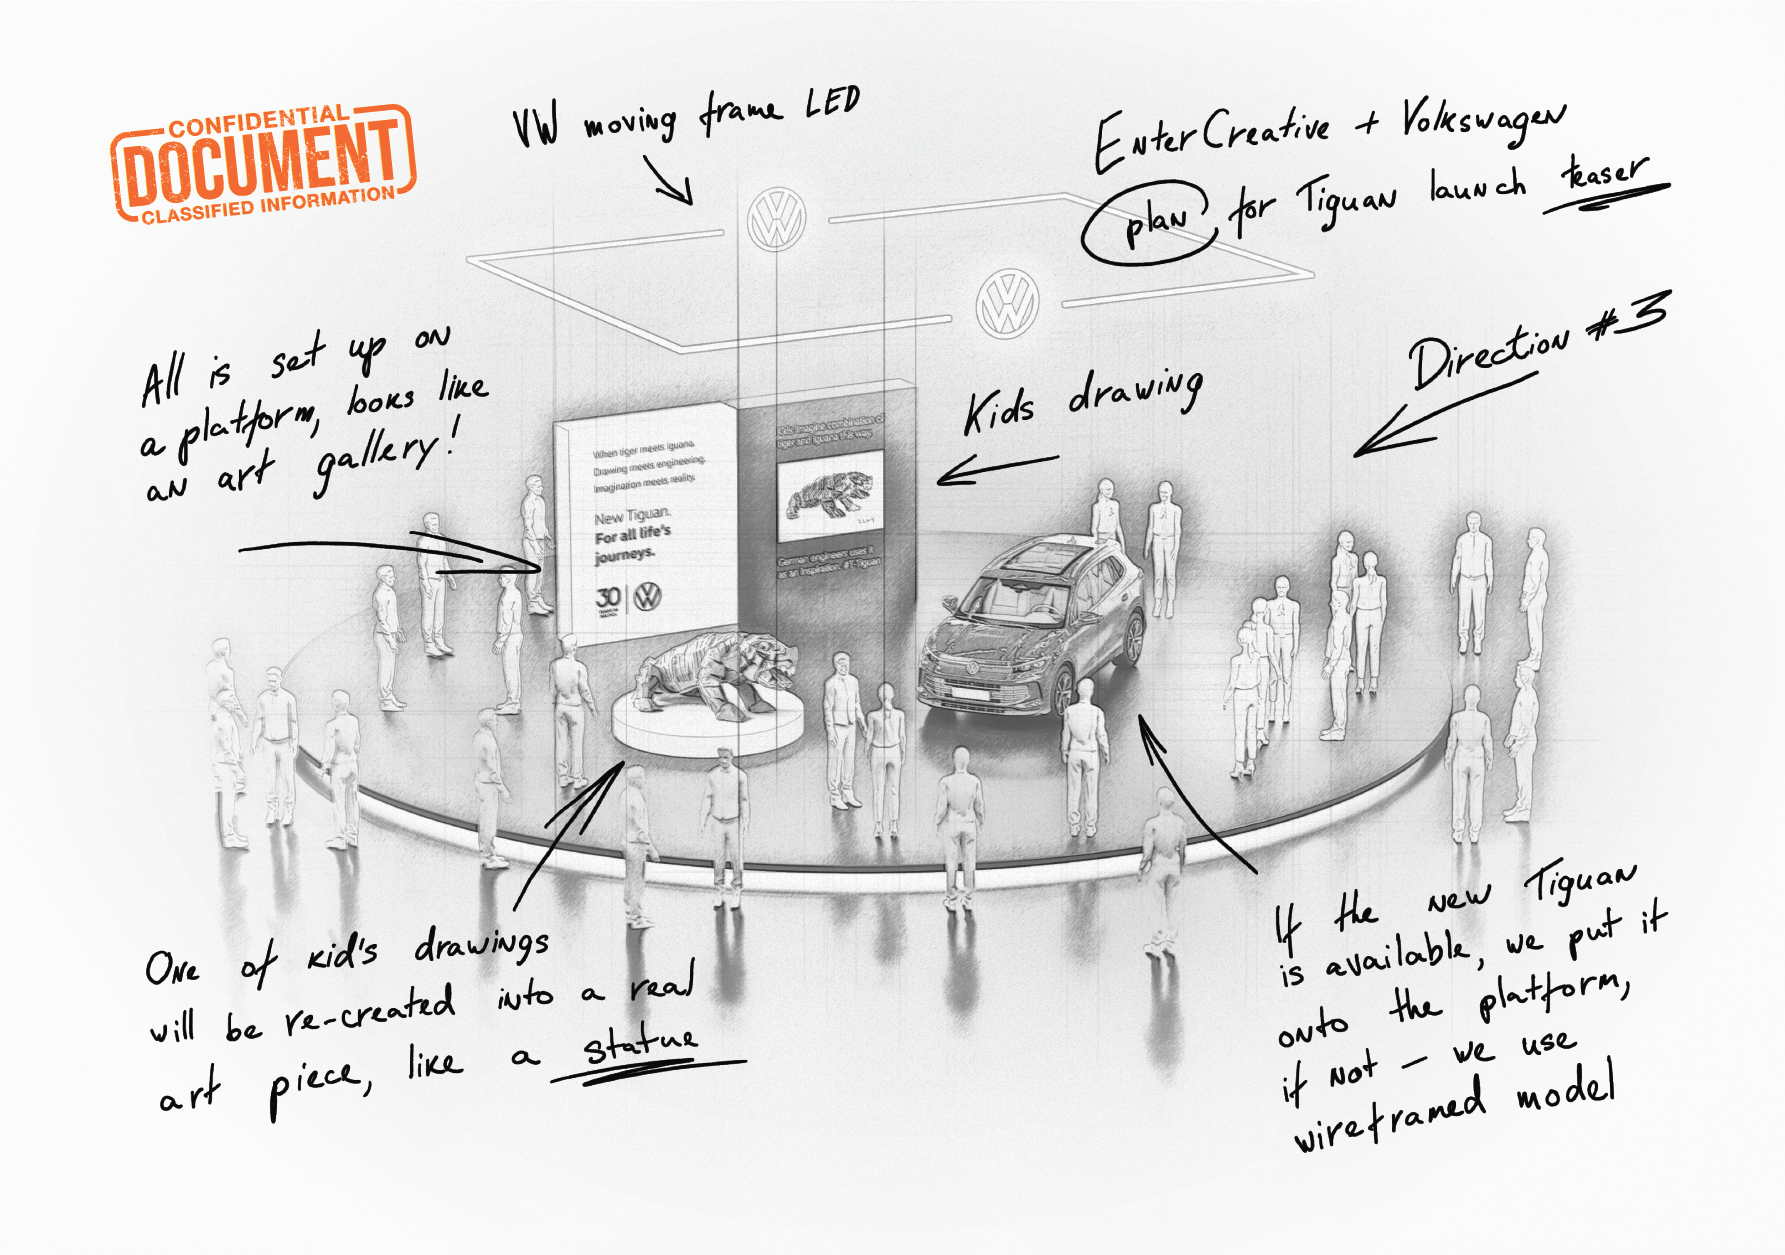 CONFIDENTIAL
DOCUMENT
CLASSIFIED INFORMATION
VW moving frame LED
EnterCreative + Volkswagen
plan for Tiguan launch teaser
Direction #3
All is set up on
a platform, looks like
an art gallery!
Kids drawing
When tiger meets iguana.
Drawing meets engineering.
Imagination meets reality.
New Tiguan.
For all life's
journeys.
30
Kids imagine combination of
tiger and iguana this way.
German engineers uses it
as an inspiration: #T-Tiguan
One of kid's drawings
will be re-created into a real
art piece, like a statue
If the new Tiguan
is available, we put it
onto the platform,
if not – we use
wireframed model